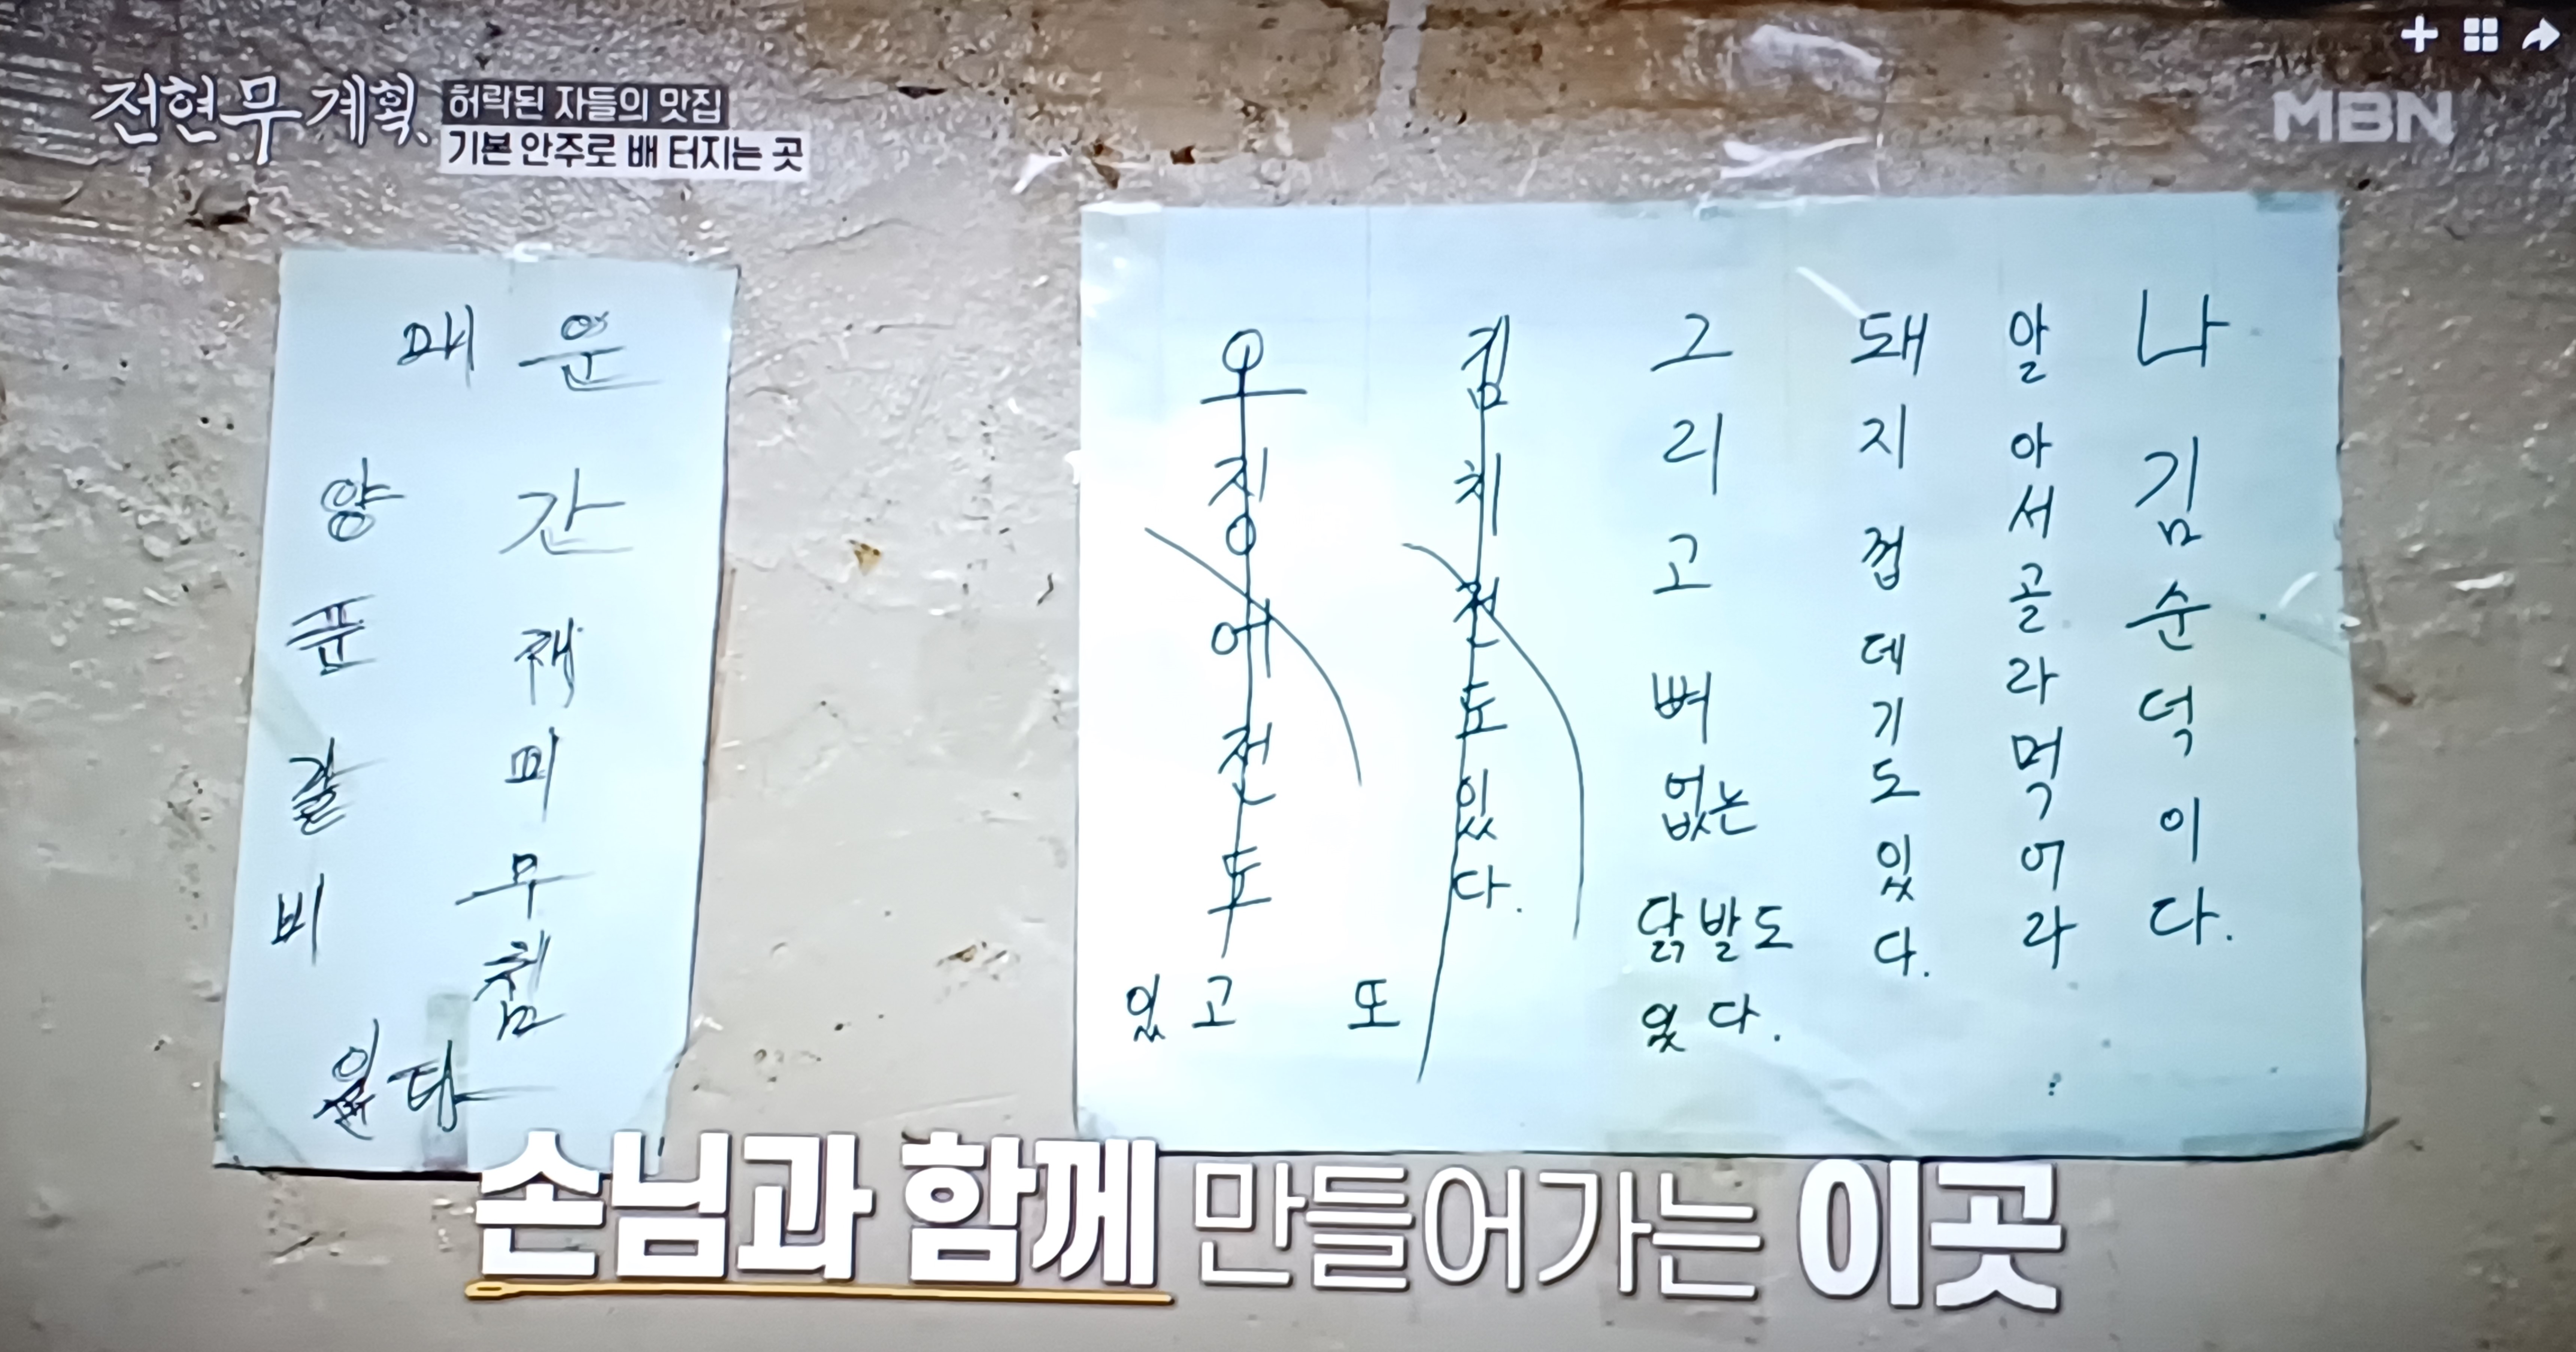 전현무계획
허락된 자들의 맛집
기본 안주로 배 터지는 곳
MBN
매운
간재미무침
양푼갈비
있다
나김순덕이다.
알아서골라먹어라
돼지껍데기도있다.
그리고뼈없는
닭발도
있다.
김치전도있다.
또
오징어에전도
있고
손님과 함께 만들어가는 이곳